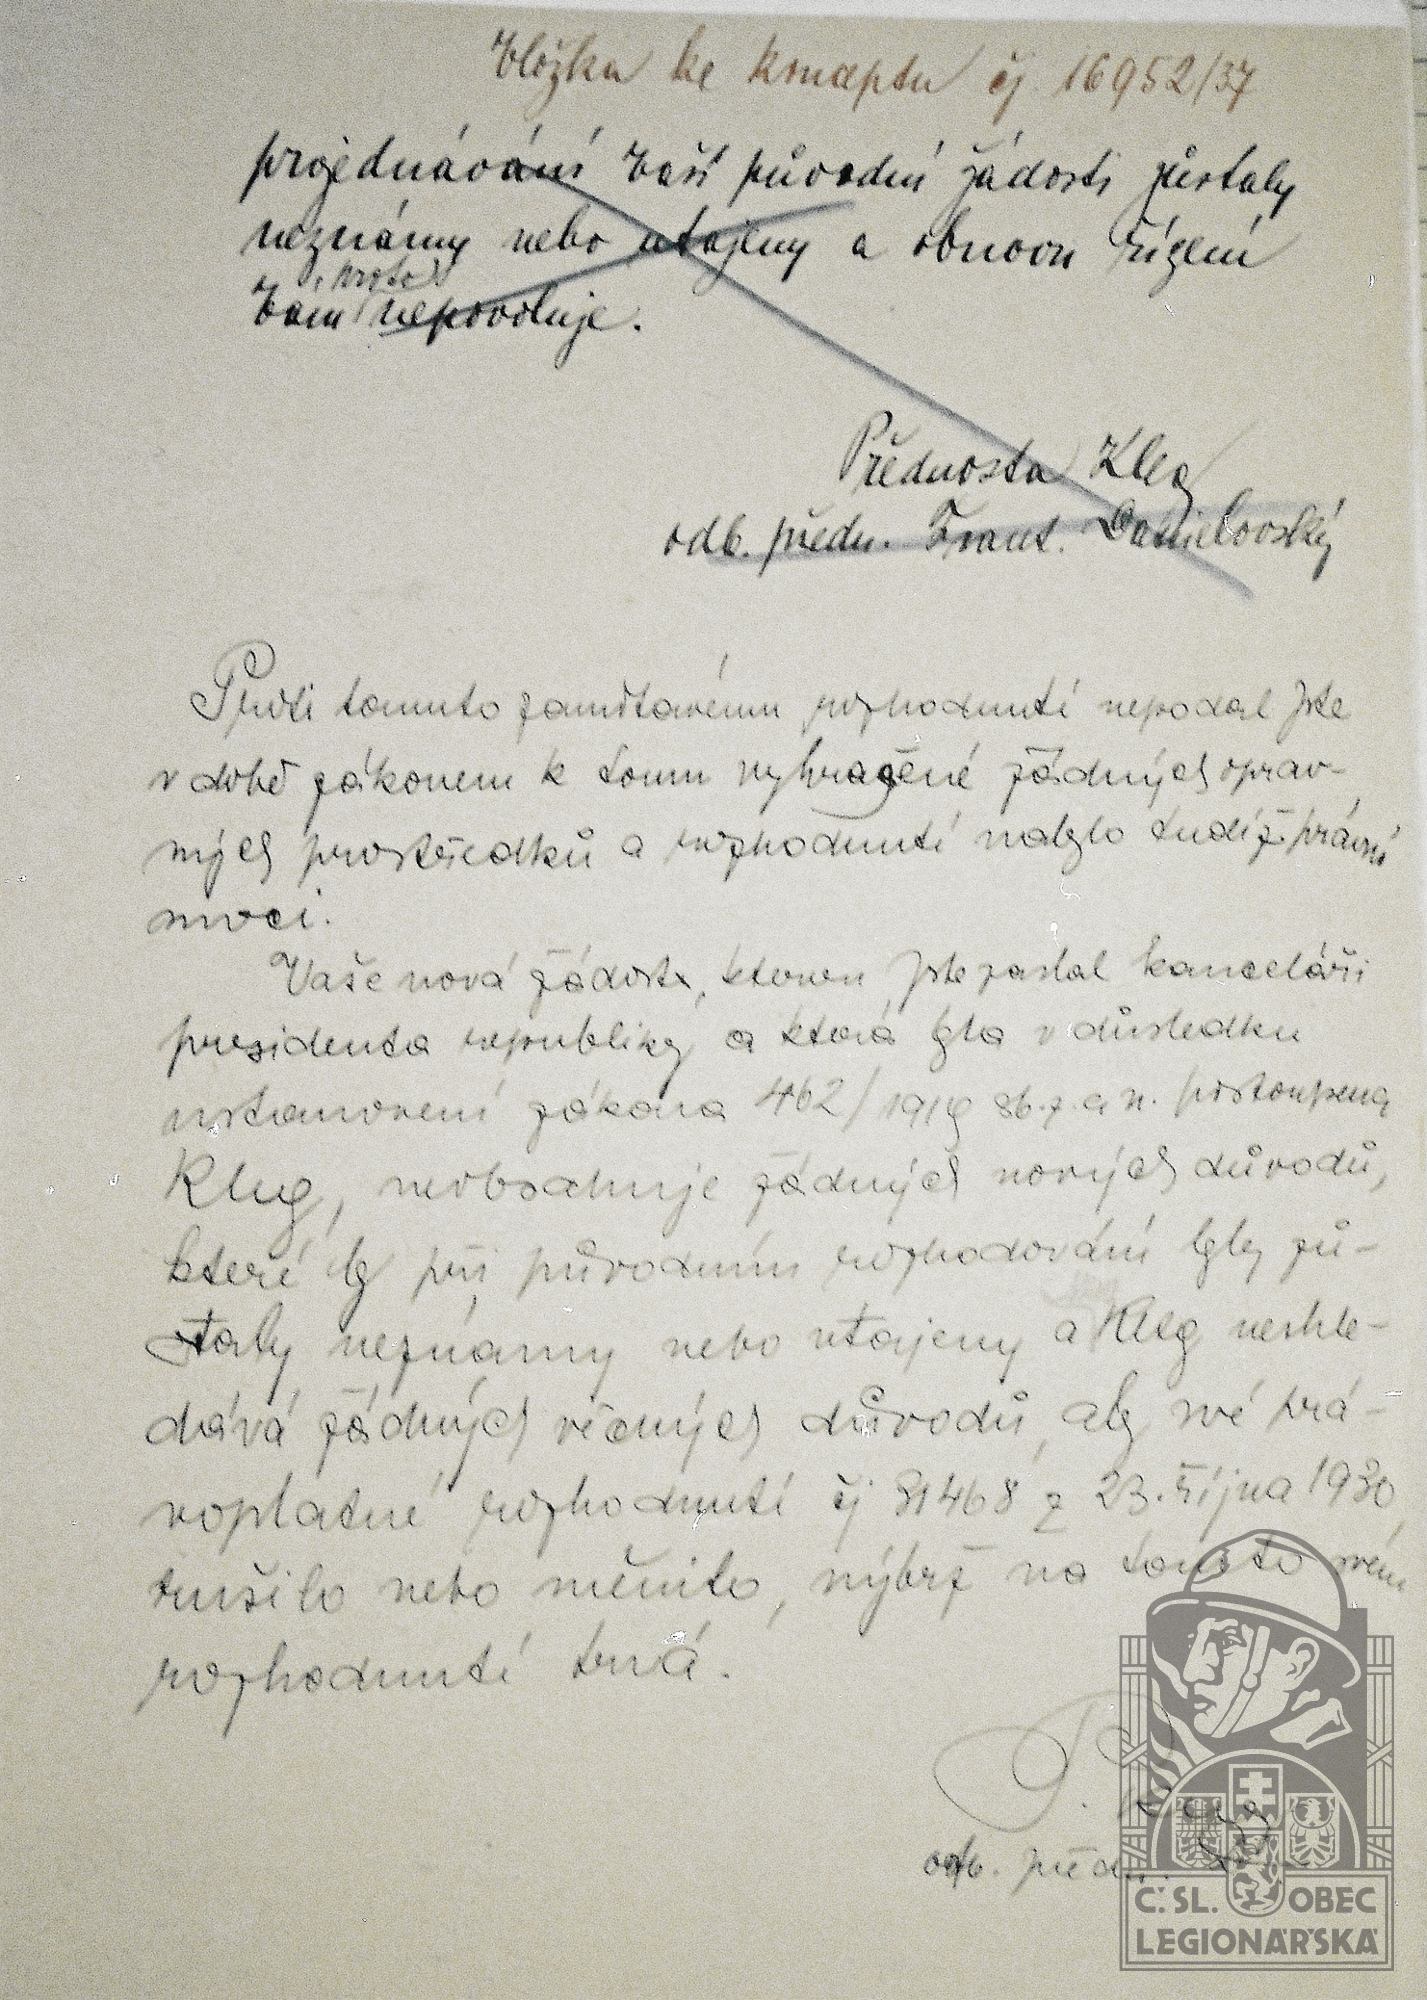 Vložka ke konceptu čj 16952/37
projednávání Vaší původní žádosti zůstaly
neznámy nebo utajeny a obnovu řízení
proto
Vám nepovoluje.
Přednosta Kleg
odb. předn. Frant. Danielovský
Proti tomuto zamítavému rozhodnutí nepodal jste
v době zákonem k tomu vyhražené žádných oprav-
ných prostředků a rozhodnutí nabylo tudíž právní
moci.
Vaše nová žádost, kterou jste zaslal kanceláři
presidenta republiky a která byla v důsledku
ustanovení zákona 462/1919 Sb.z.a n. postoupena
Kleg, neobsahuje žádných nových důvodů,
které by při původním rozhodování byly zů-
staly neznámy nebo utajeny a Kleg neshle-
dává žádných věcných důvodů, aby své prá-
voplatné rozhodnutí čj 81468 z 23. října 1930
rušilo nebo měnilo, nýbrž na tomto svém
rozhodnutí trvá.
P. Kleg
odb. předn.
Č. SL. OBEC
LEGIONÁŘSKÁ